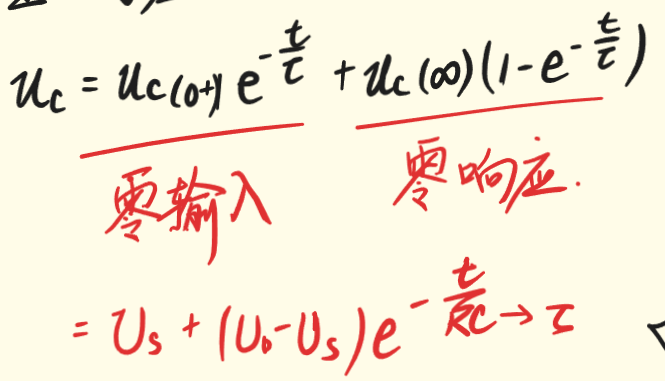 u_c = u_c(0+) e^{-t/τ} + u_c(∞)(1-e^{-t/τ})
零输入 零响应.
= U_s + (U_0-U_s) e^{-t/RC} → τ